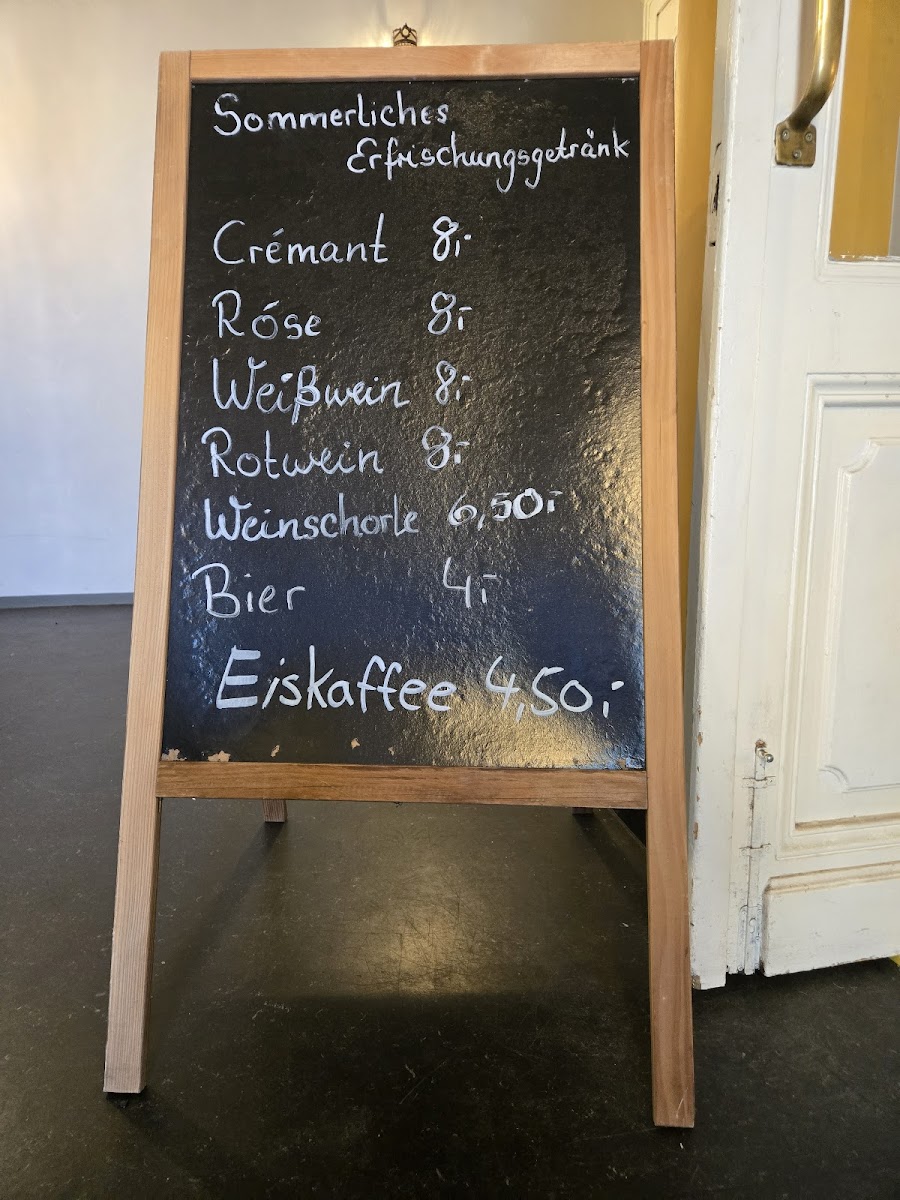 Sommerliches
Erfrischungsgetränk
Crémant 8,-
Róse 8,-
Weißwein 8,-
Rotwein 8,-
Weinschorle 6,50,-
Bier 4,-
Eiskaffee 4,50,-